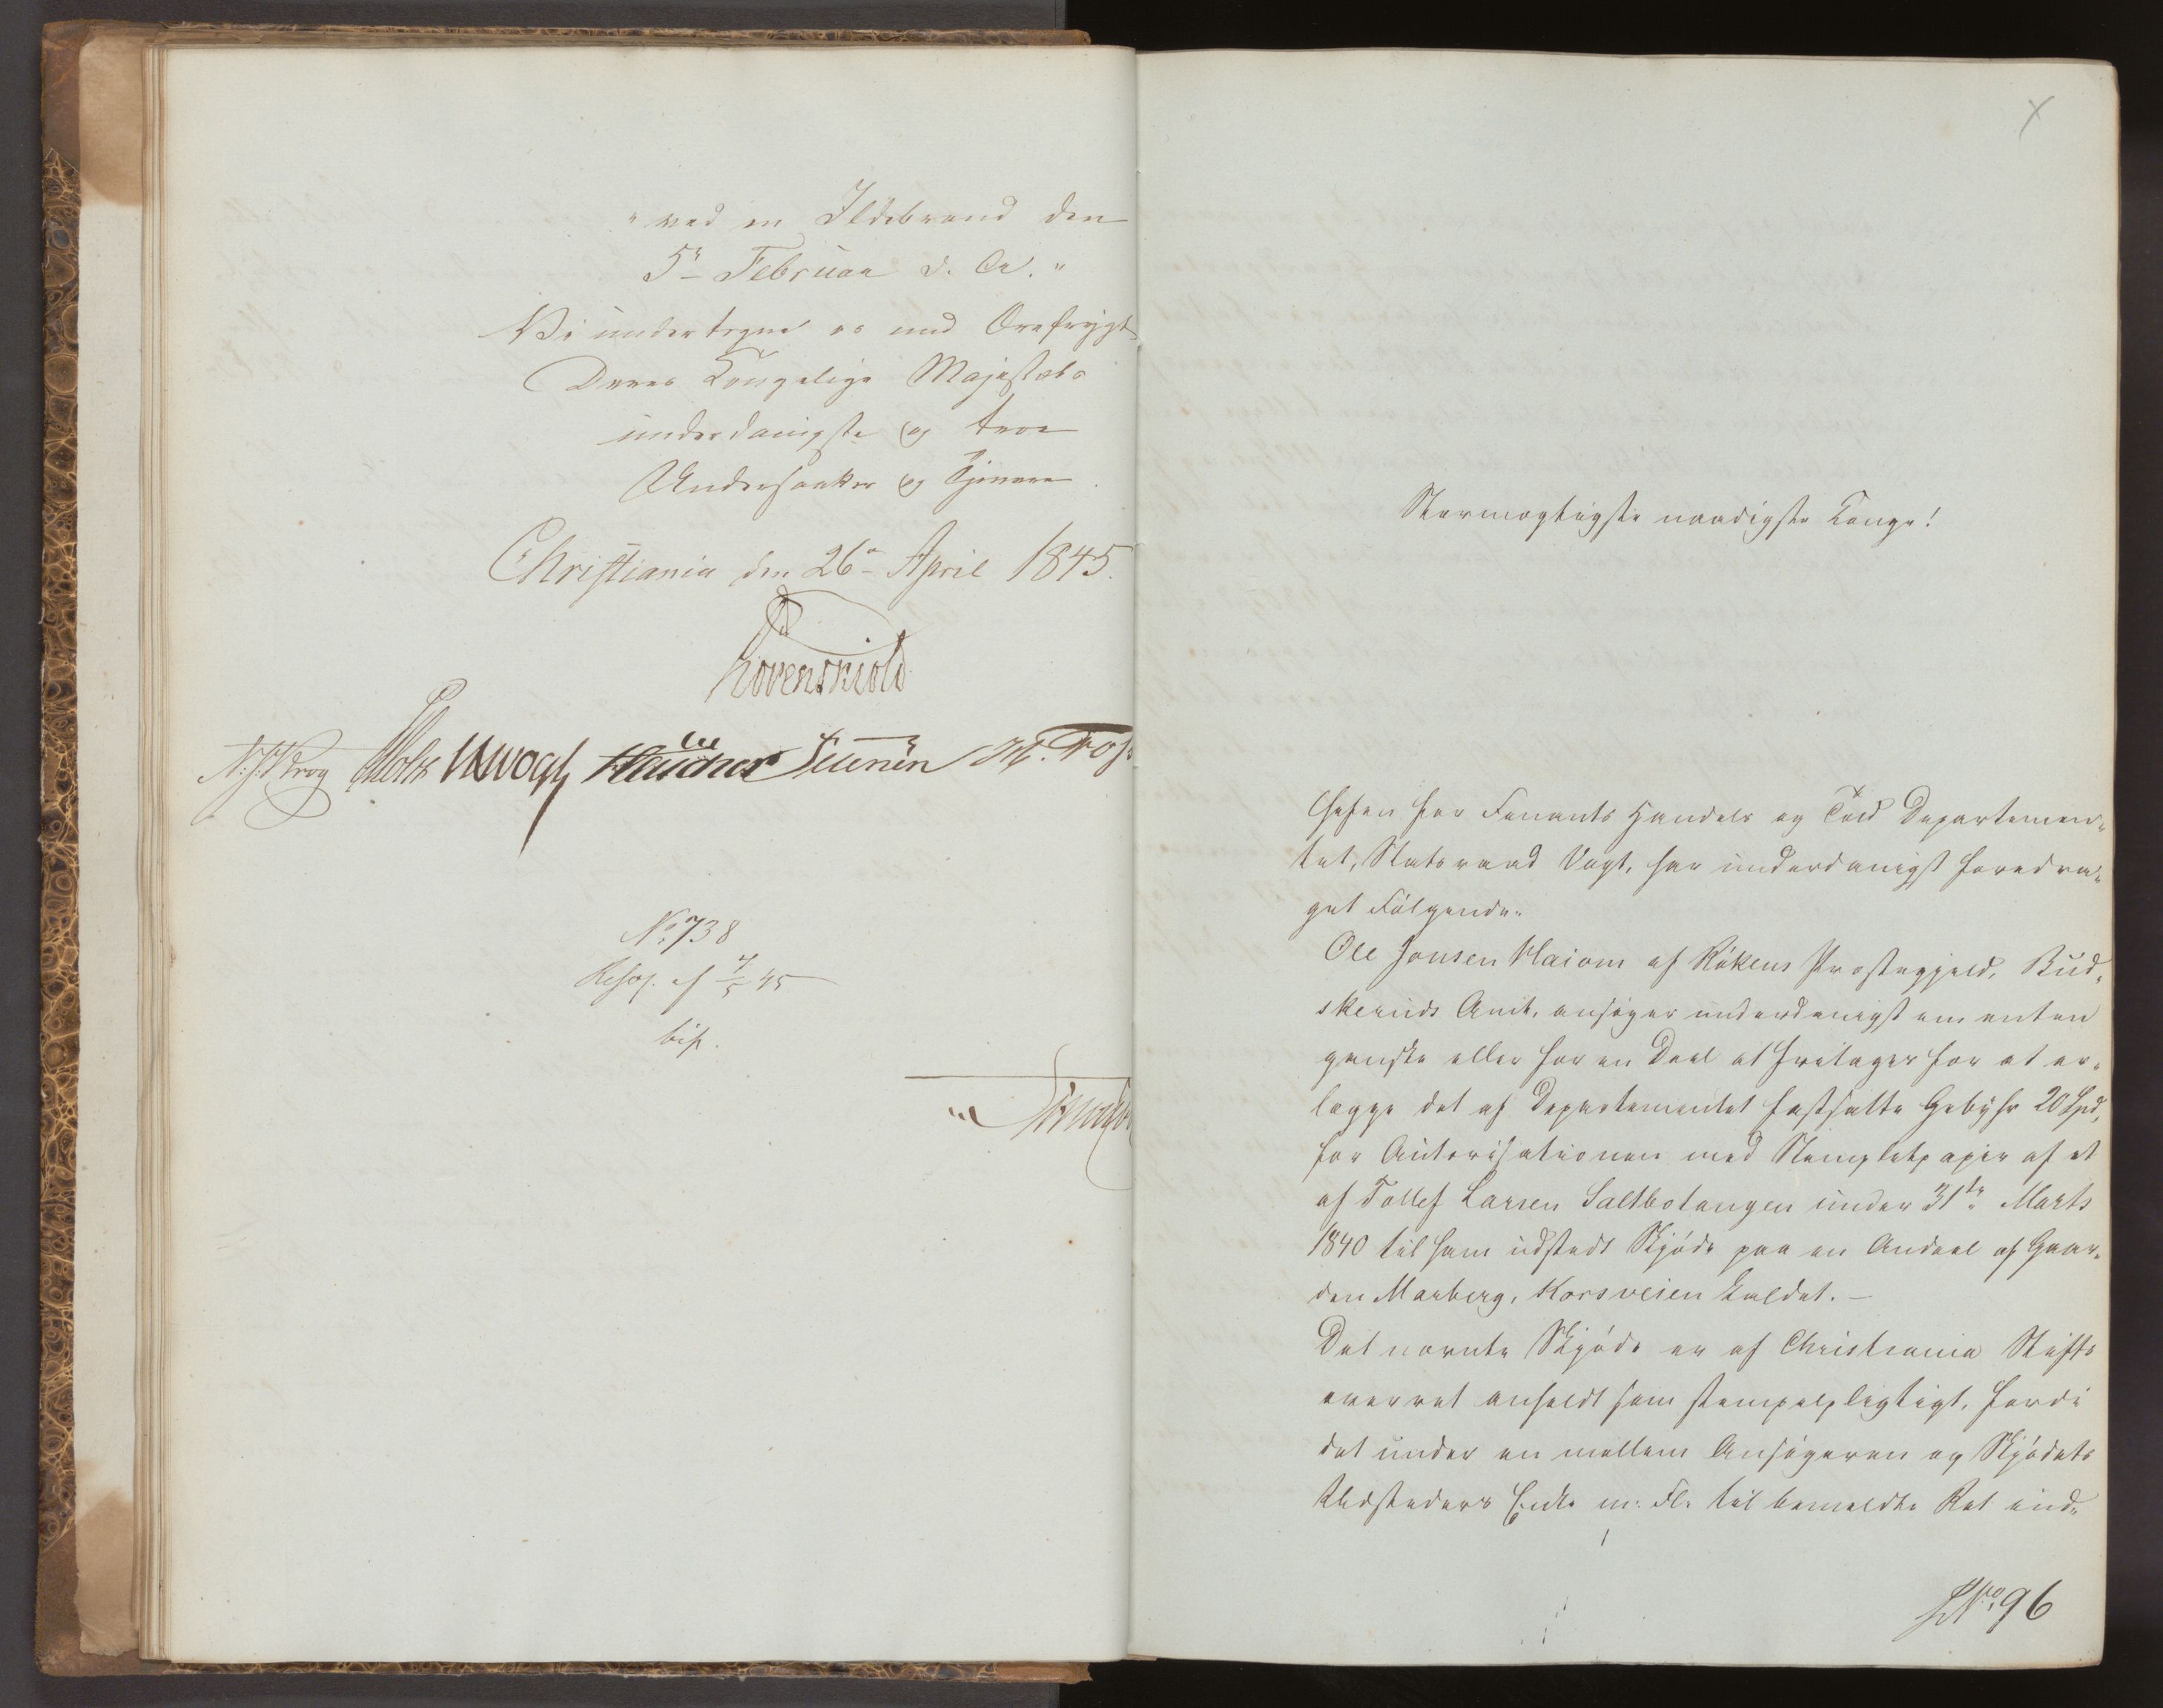 "ved en Ildebrand den
5te Februar d. A."
Vi undertegne os med Ærefrygt
Deres Kongelige Majestæts
underdanigste og troe
Undersaatter og Tjenere.
Christiania den 26de April 1845.
Løvenskiold
N. J. Krog Holst Vogt
No 738
Resol. af 7/5 45
bif.
Stormægtigste naadigste Konge!
Chefen for Finants Handels og Told Departemen-
tet, Statsraad Vogt, har underdanigst foredra-
get Følgende:
Ole Jonsen Haiom af Røkens Præstegjeld, Bud-
skeruds Amt, ansøger underdanigst om enten
ganske eller for en Deel at fritages for at er-
lægge det af Departementet fastsatte Gebyhr 20 Spd,
for Autorisationen med Stempletpapir af et
af Tollef Larsen Saltbotangen under 31te Marts
1840 til ham udstedt Skjøde paa en Andeel af Gaar-
den Marberg, Korsveien kaldet. –
Det nævnte Skjøde er af Christiania Stifts
overret anseet som stempelpligtigt, fordi
det under en mellem Ansøgeren og Skjødets
Udsteders Enke m: Fl: til bemeldte Ret ind-
No 96